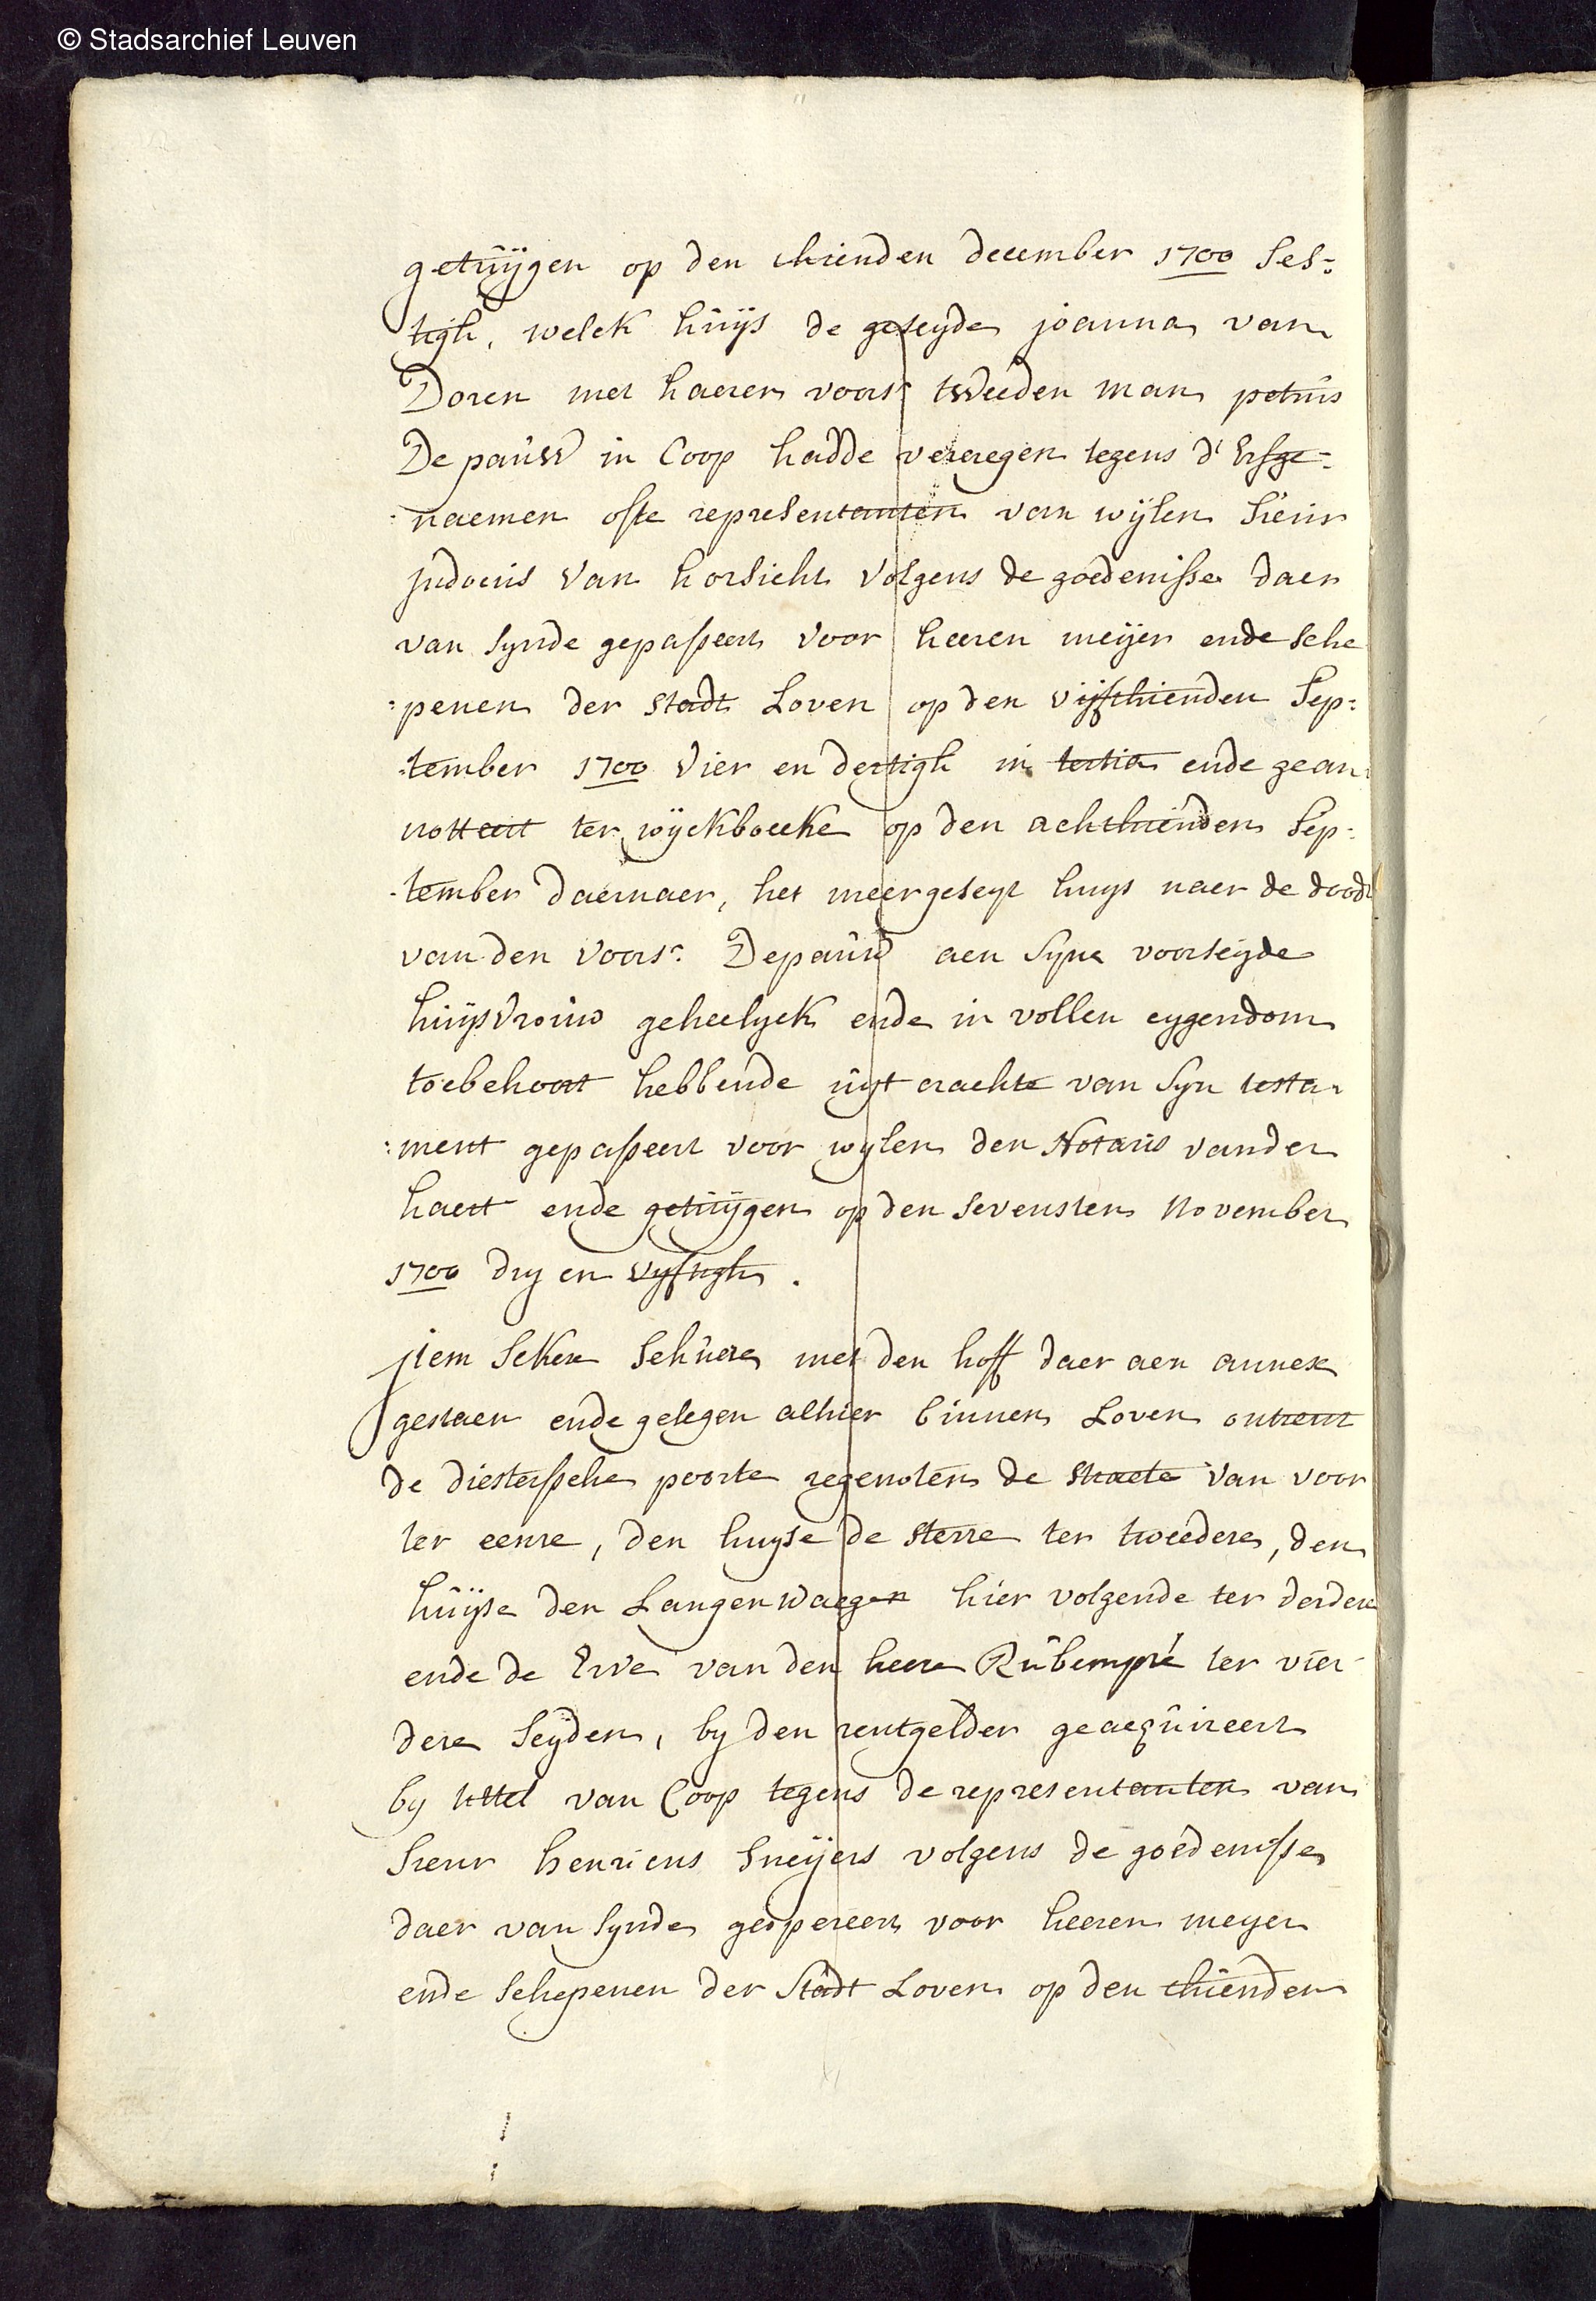 © Stadsarchief Leuven
getuijgen op den thienden december 1700 ses:
tigh, welck huijs de geseyde joanna van
Doren met haeren voors: tweeden man petrus
De pauw in Coop hadde vercregen tegens d'Erfge:
:naemen ofte representanten van wijlen sieur
judocus van horsicht volgens de goedenisse daer
van synde gepasseert voor heeren meijer ende sche
:penen der stadt Loven op den vijfthienden sep:
:tember 1700 vier en dertigh in tertia ende gean:
notteert ter wijckboecke op den achthienden sep:
:tember daernaer, het meergeseyt huys naer de doodt
van den voors: Depauw aen syne voorseyde
huijsvrouw geheelyck ende in vollen eygendom
toebehoort hebbende uyt crachte van syn testa:
:ment gepasseert voor wylen den Notaris vander
haert ende getuijgen op den sevensten November
1700 dry en vyftigh.
jtem sekere schuere met den hoff daer aen annex
gestaen ende gelegen alhier binnen Loven ontrent
de diestersche poorte regenoten de straete van voor
ter eenre, den huyse de sterre ter tweedere, den
huijse den Langen Waegen hier volgende ter derdere
ende de Erve van den heere Rubempré ter vier
dere seyden, by den rentgelder geacquireert
by tittel van Coop tegens de representanten van
sieur henricus sneijers volgens de goedenisse
daer van synde geopereert voor heeren meyer
ende schepenen der stadt Loven op den thienden